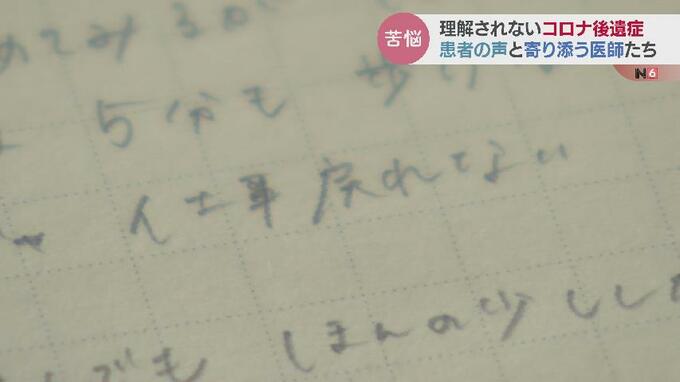 苦悩
理解されないコロナ後遺症
患者の声と寄り添う医師たち
N6
めてみるが
5分も歩け
仕事戻れてない
でも ほんの少しした